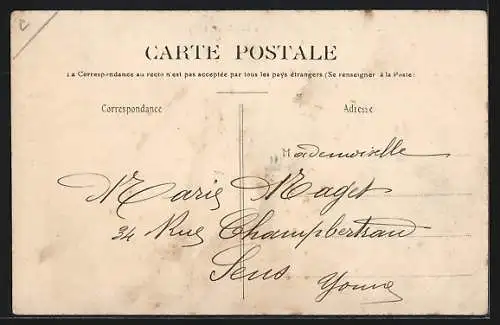 CARTE POSTALE
La Correspondance au recto n'est pas acceptée par tous les pays étrangers (Se renseigner à la Poste)
Correspondance
Adresse
Mademoiselle
Marie Maget
34 Rue Champbertrand
Sens Yonne